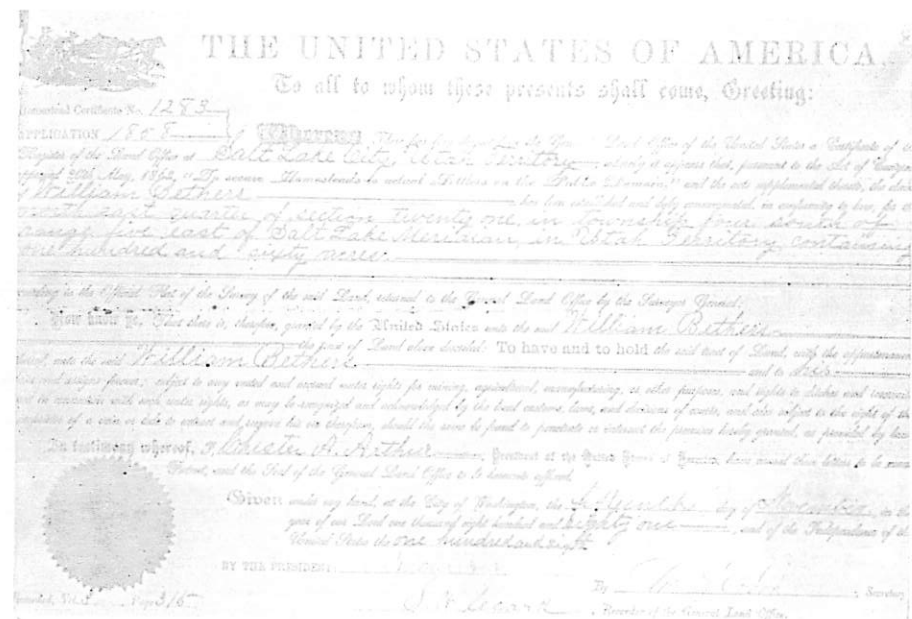 THE UNITED STATES OF AMERICA,
To all to whom these presents shall come, Greeting:
Homestead Certificate No. 1283
APPLICATION 1808
Whereas, There has been deposited in the General Land Office of the United States a Certificate of the
Register of the Land Office at Salt Lake City, Utah Territory, whereby it appears that, pursuant to the Act of Congress
approved 20th May, 1862, "To secure Homesteads to actual Settlers on the Public Domain," and the acts supplemental thereto, the claim
of William Bethers has been established and duly consummated, in conformity to law, for the
north east quarter of section twenty one, in township four south of
range five east of Salt Lake Meridian, in Utah Territory, containing
one hundred and sixty acres
according to the Official Plat of the Survey of the said Land, returned to the General Land Office by the Surveyor General:
Now know ye, That there is, therefore, granted by the United States unto the said William Bethers
the tract of Land above described: To have and to hold the said tract of Land, with the appurtenances
thereof, unto the said William Bethers and to his
heirs and assigns forever; subject to any vested and accrued water rights for mining, agricultural, manufacturing, or other purposes, and rights to ditches and reservoirs
used in connection with such water rights, as may be recognized and acknowledged by the local customs, laws, and decisions of courts, and also subject to the right of the
proprietor of a vein or lode to extract and remove his ore therefrom, should the same be found to penetrate or intersect the premises hereby granted, as provided by law.
In testimony whereof, I, Chester A. Arthur, President of the United States of America, have caused these letters to be made
Patent, and the Seal of the General Land Office to be hereunto affixed.
Given under my hand, at the City of Washington, the day of November, in the
year of our Lord one thousand eight hundred and eighty one, and of the Independence of the
United States the one hundred and
BY THE PRESIDENT:
By , Secretary
Recorded, Vol. Page 315
, Recorder of the General Land Office.